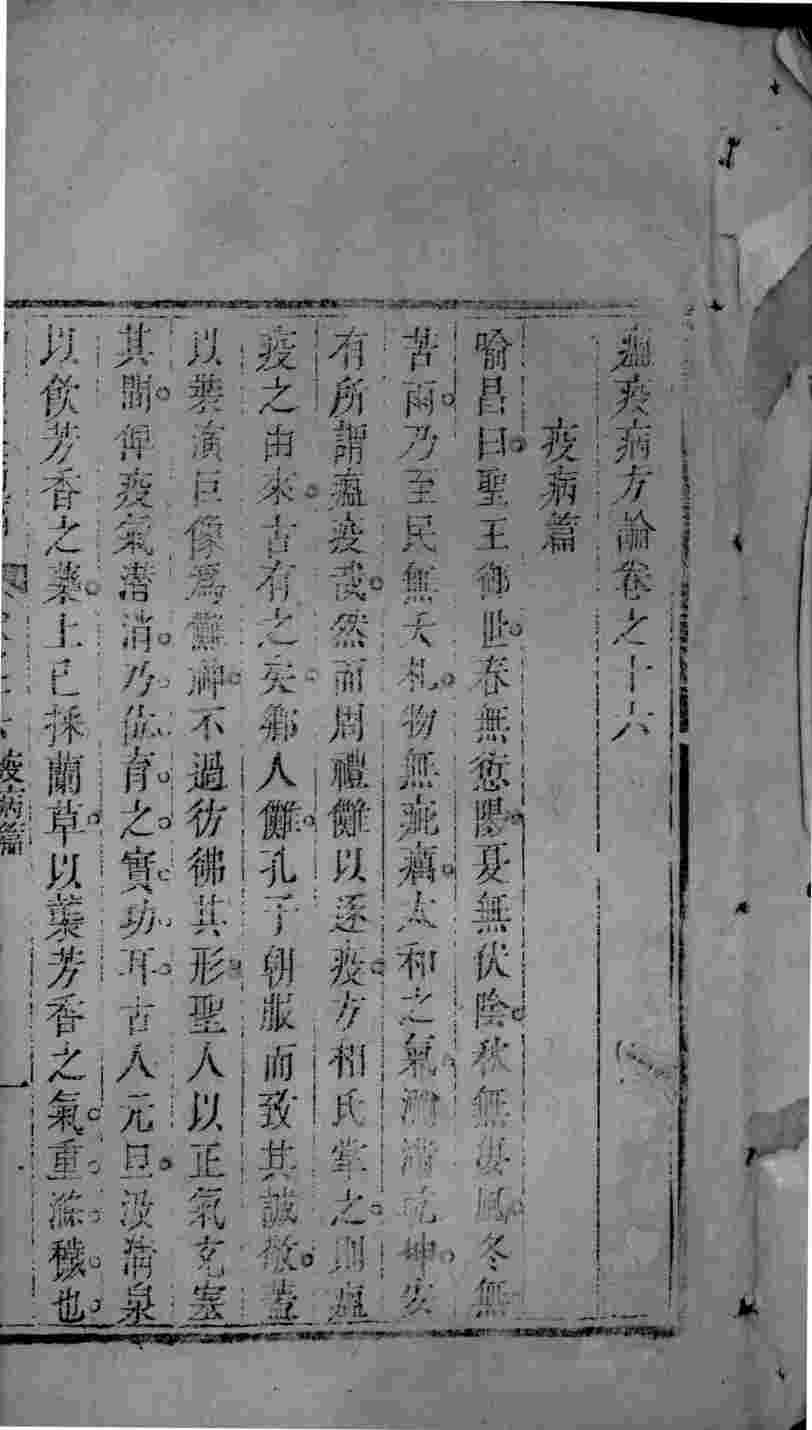 瘟疫病方論卷之十六
疫病篇
喻昌曰聖王御世春無愆陽夏無伏陰秋無淒風冬無
苦雨乃至民無夭札物無疵癘太和之氣瀰滿乾坤安
有所謂瘟疫哉然而周禮儺以逐疫方相氏掌之則瘟
疫之由來古有之矣鄉人儺孔子朝服而致其誠敬蓋
以裝演巨像爲儺神不過彷彿其形聖人以正氣充塞
其間俾疫氣潛消乃位育之實功耳古人元旦汲清泉
以飲芳香之藥上巳採蘭草以葉芳香之氣重滌穢也
疫病篇
一